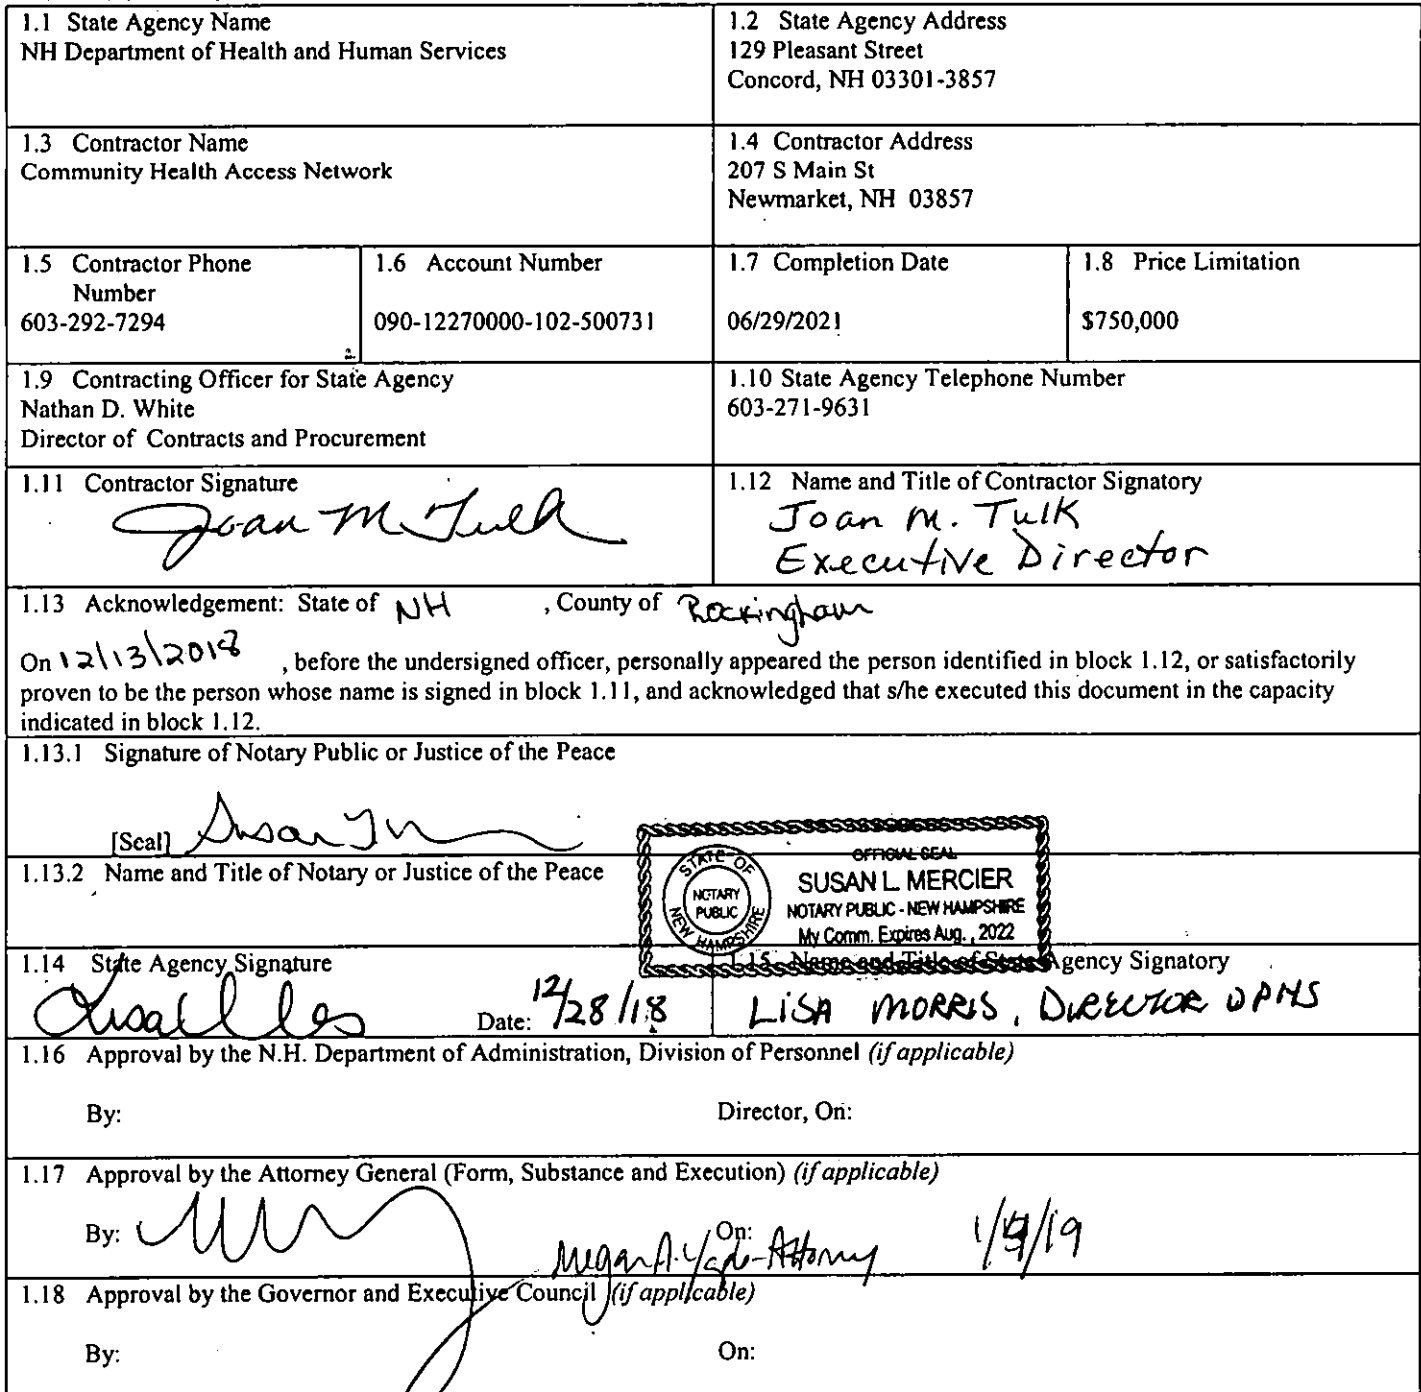 1.1 State Agency Name
NH Department of Health and Human Services
1.2 State Agency Address
129 Pleasant Street
Concord, NH 03301-3857
1.3 Contractor Name
Community Health Access Network
1.4 Contractor Address
207 S Main St
Newmarket, NH 03857
1.5 Contractor Phone
Number
603-292-7294
1.6 Account Number
090-12270000-102-500731
1.7 Completion Date
06/29/2021
1.8 Price Limitation
$750,000
1.9 Contracting Officer for State Agency
Nathan D. White
Director of Contracts and Procurement
1.10 State Agency Telephone Number
603-271-9631
1.11 Contractor Signature
Joan M Tulk
1.12 Name and Title of Contractor Signatory
Joan M. Tulk
Executive Director
1.13 Acknowledgement: State of NH , County of Rockingham
On 12/13/2018 , before the undersigned officer, personally appeared the person identified in block 1.12, or satisfactorily
proven to be the person whose name is signed in block 1.11, and acknowledged that s/he executed this document in the capacity
indicated in block 1.12.
1.13.1 Signature of Notary Public or Justice of the Peace
[Seal] Susan
1.13.2 Name and Title of Notary or Justice of the Peace
STATE OF NEW HAMPSHIRE
NOTARY
PUBLIC
OFFICIAL SEAL
SUSAN L. MERCIER
NOTARY PUBLIC - NEW HAMPSHIRE
My Comm. Expires Aug. , 2022
1.14 State Agency Signature
Date: 12/28/18
1.15 Name and Title of State Agency Signatory
LISA MORRIS, DIRECTOR DPHS
1.16 Approval by the N.H. Department of Administration, Division of Personnel (if applicable)
By: Director, On:
1.17 Approval by the Attorney General (Form, Substance and Execution) (if applicable)
By: On:
Megan A. -Attorney
1.18 Approval by the Governor and Executive Council (if applicable)
By: On: